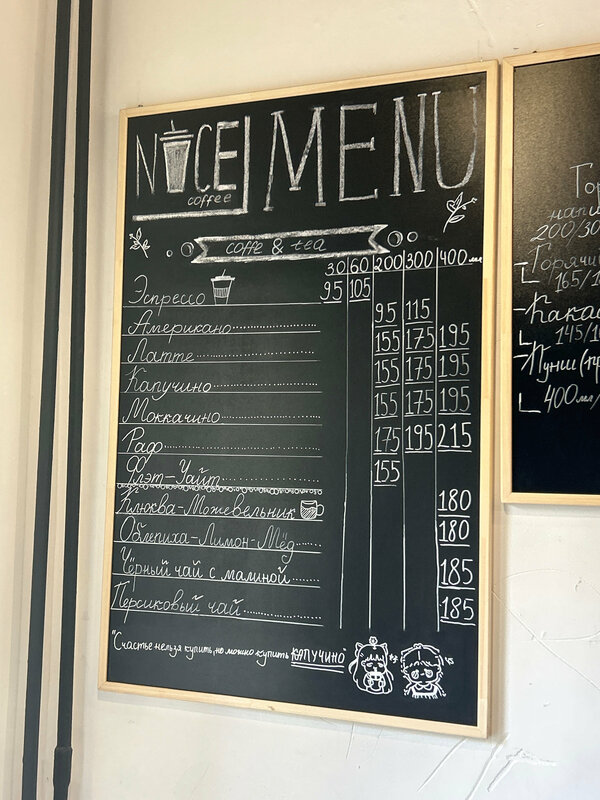 NICE MENU
coffee
coffe & tea
30 60 200 300 400 мл
Эспрессо 95 105
Американо 95 115
Латте 155 175 195
Капучино 155 175 195
Моккачино 155 175 195
Раф 175 195 215
Флэт-Уайт 155
Клюква-Можевельник 180
Облепиха-Лимон-Мёд 180
Чёрный чай с малиной 185
Персиковый чай 185
"Счастье нельзя купить, но можно купить КАПУЧИНО"
Гор
напи
200/30
Горячий
165/1
Какао
145/1
Пунш (
400мл/